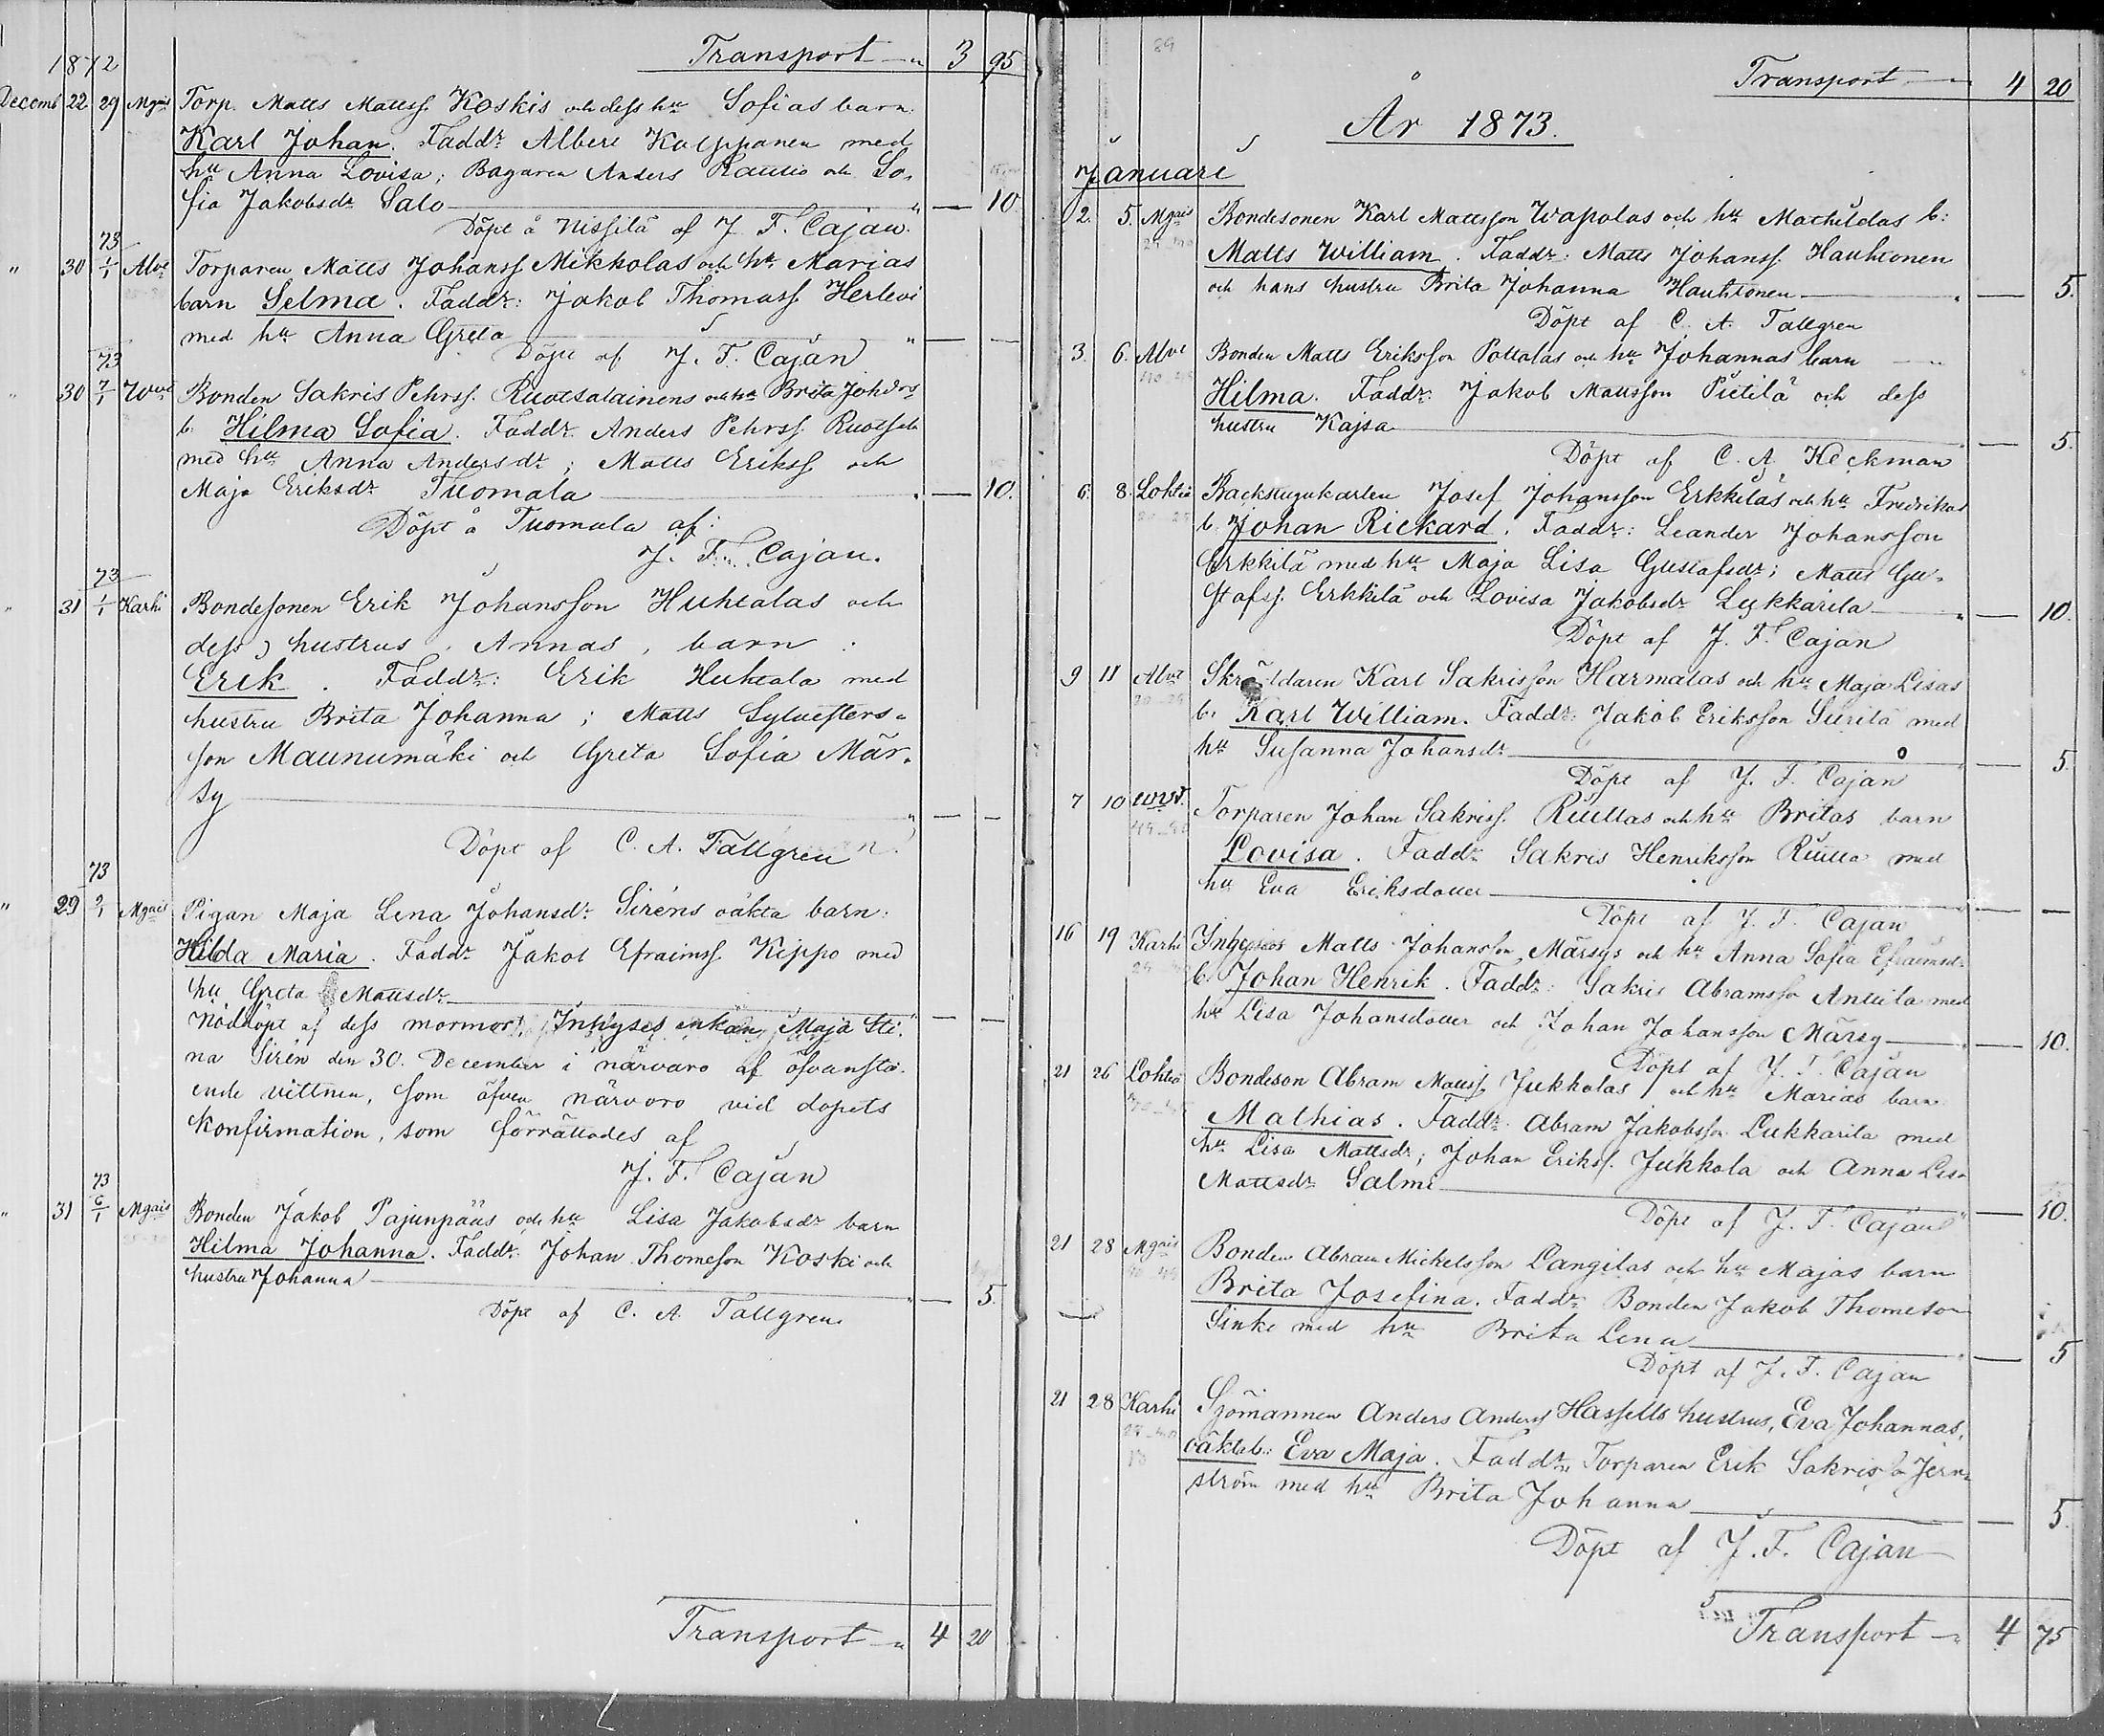 1872
Transport — " 3 95
Decemb 22 29 Mgais Torp. Matts Mattss. Koskis och dess hu Sofias barn:
Karl Johan. Faddr Albert Kolppanen med
hu Anna Lovisa; Bagaren Anders Rautio och So-
fia Jakobsdr Salo — " — 10
Döpt å Nissilä af J. F. Cajan.
73
" 30 1/1 Alve Torparen Matts Johanss Mikkolas och hu Marias
barn Selma. Faddr: Jakob Thomass. Herlevi
med hu Anna Greta — " — —
Döpt af J. F. Cajan
73
" 30 7/1 Bonden Sakris Pehrss. Ruotsalainens och hu Brita Johdrs
b. Hilma Sofia. Faddr. Anders Pehrss. Ruotsala
med hu Anna Andersdr; Matts Erikss och
Maja Eriksdr Tuomala — " — 10.
Döpt å Tuomala af:
J. F. Cajan.
73
" 31 1/1 Karhi Bondesonen Erik Johansson Huhtalas och
dess hustrus, Annas, barn:
Erik. Faddr: Erik Huhtala med
hustru Brita Johanna; Matts Sylvesters-
son Maunumäki och Greta Sofia Mär-
sy — " — —
Döpt af C. A. Tallgren
73
" 29 Mgais Pigan Maja Lena Johansdr Siréns oäkta barn:
Hilda Maria. Faddr Jakob Efraimss. Kippo med
hu Greta Mattsdr — " — —
Nöddöpt af dess mormor, Inhyses enkan Maja Sti-
na Sirén den 30. December i närvaro af ofvanstå-
ende vittnen, som äfven närvoro vid dopets
konfirmation, som förrättades af
J. F. Cajan
73
" 31 6/1 Mgais Bonden Jakob Pajunpääs och hu Lisa Jakobsdr barn
Hilma Johanna. Faddr. Johan Thomeson Koski och
hustru Johanna — " — 5.
Döpt af C. A. Tallgren
Transport — " 4 20
29
Transport — 4 20
År 1873.
Januari
2. 5. Mgais Bondesonen Karl Mattsson Wapolas och hu Mathildas b:
Matts William. Faddr: Matts Johanss. Hauhtonen
och hans hustru Brita Johanna Hauhtonen — " — 5.
Döpt af C. A. Tallgren
3. 6. Alve Bonden Matts Eriksson Pottalas och hu Johannas barn
Hilma. Faddr: Jakob Mattsson Pietilä och dess
hustru Kajsa — " — 5.
Döpt af C. A. Heckman
6. 8. Lohteå Backstugukarlen Josef Johansson Erkkiläs och hu Fredrikas
b. Johan Rickard. Faddr: Leander Johansson
Erkkilä med hu Maja Lisa Gustafsdr; Matts Gu-
stafss. Erkkilä och Lovisa Jakobsdr Lukkarila — " — 10.
Döpt af J. F. Cajan
9 11 Alve Skräddaren Karl Sakrisson Harmalas och hu Maja Lisas
b. Karl William. Faddr: Jakob Eriksson Siirilä med
hu Susanna Johansdr — " — 5.
Döpt af J. F. Cajan
7 10 Torparen Johan Sakriss. Riuttas och hu Britas barn
Lovisa. Faddr Sakris Henriksson Riutta med
hu Eva Eriksdotter — " — —
Döpt af J. F. Cajan
16 19 Karhi Inhyses Matts Johansson Märsys och hu Anna Sofia Efraimsdr
b. Johan Henrik. Faddr: Sakris Abramsson Anttila med
hu Lisa Johansdotter och Johan Johansson Märsy — " — 10.
Döpt af J. F. Cajan
21 26 Lohteå Bondeson Abram Mattss. Jukkolas och hu Marias barn
Mathias. Faddr. Abram Jakobsson Lukkarila med
hu Lisa Mattsdr; Johan Erikss. Jukkola och Anna Lisa
Mattsdr Salmi — " — 10.
Döpt af J. F. Cajan
21 28 Mgais Bonden Abram Mickelsson Pangilas och hu Majas barn
Brita Josefina. Faddr Bonden Jakob Thomeson
Sinke med hu Brita Lena — " — 5
Döpt af J. F. Cajan
21 28 Karhi Sjömannen Anders Anderss Hassells hustrus, Eva Johannas,
oäkta b.: Eva Maja. Faddr. Torparen Erik Sakrisson Jern-
ström med hu Brita Johanna — — 5.
Döpt af J. F. Cajan
Transport — " 4 75